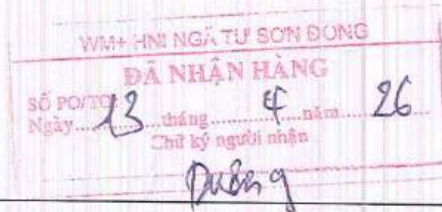 WM+ HNI NGÃ TƯ SƠN ĐÔNG
ĐÃ NHẬN HÀNG
SỐ PO/TO:
Ngày 13 tháng 4 năm 26
Chữ ký người nhận
Dương